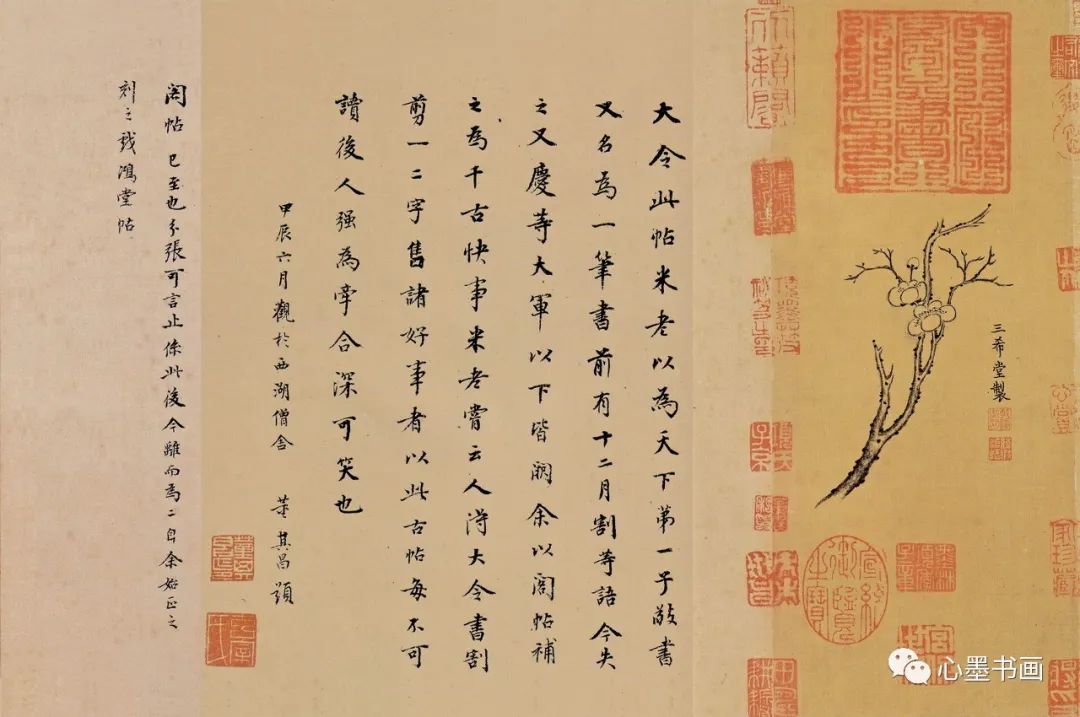 三希堂製
天籟閣
宣統御覽之寶
大令此帖米老以為天下第一子敬書
又名為一筆書前有十二月割等語今失
之又慶等大軍以下皆闕余以閣帖補
之為千古快事米老嘗云人得大令書割
剪一二字售諸好事者以此古帖每不可
讀後人强為牽合深可笑也
甲辰六月觀於西湖僧舍 董其昌題
閣帖 已至也分張可言止係此後今離而為二自余始正之
刻之戲鴻堂帖
心墨书画